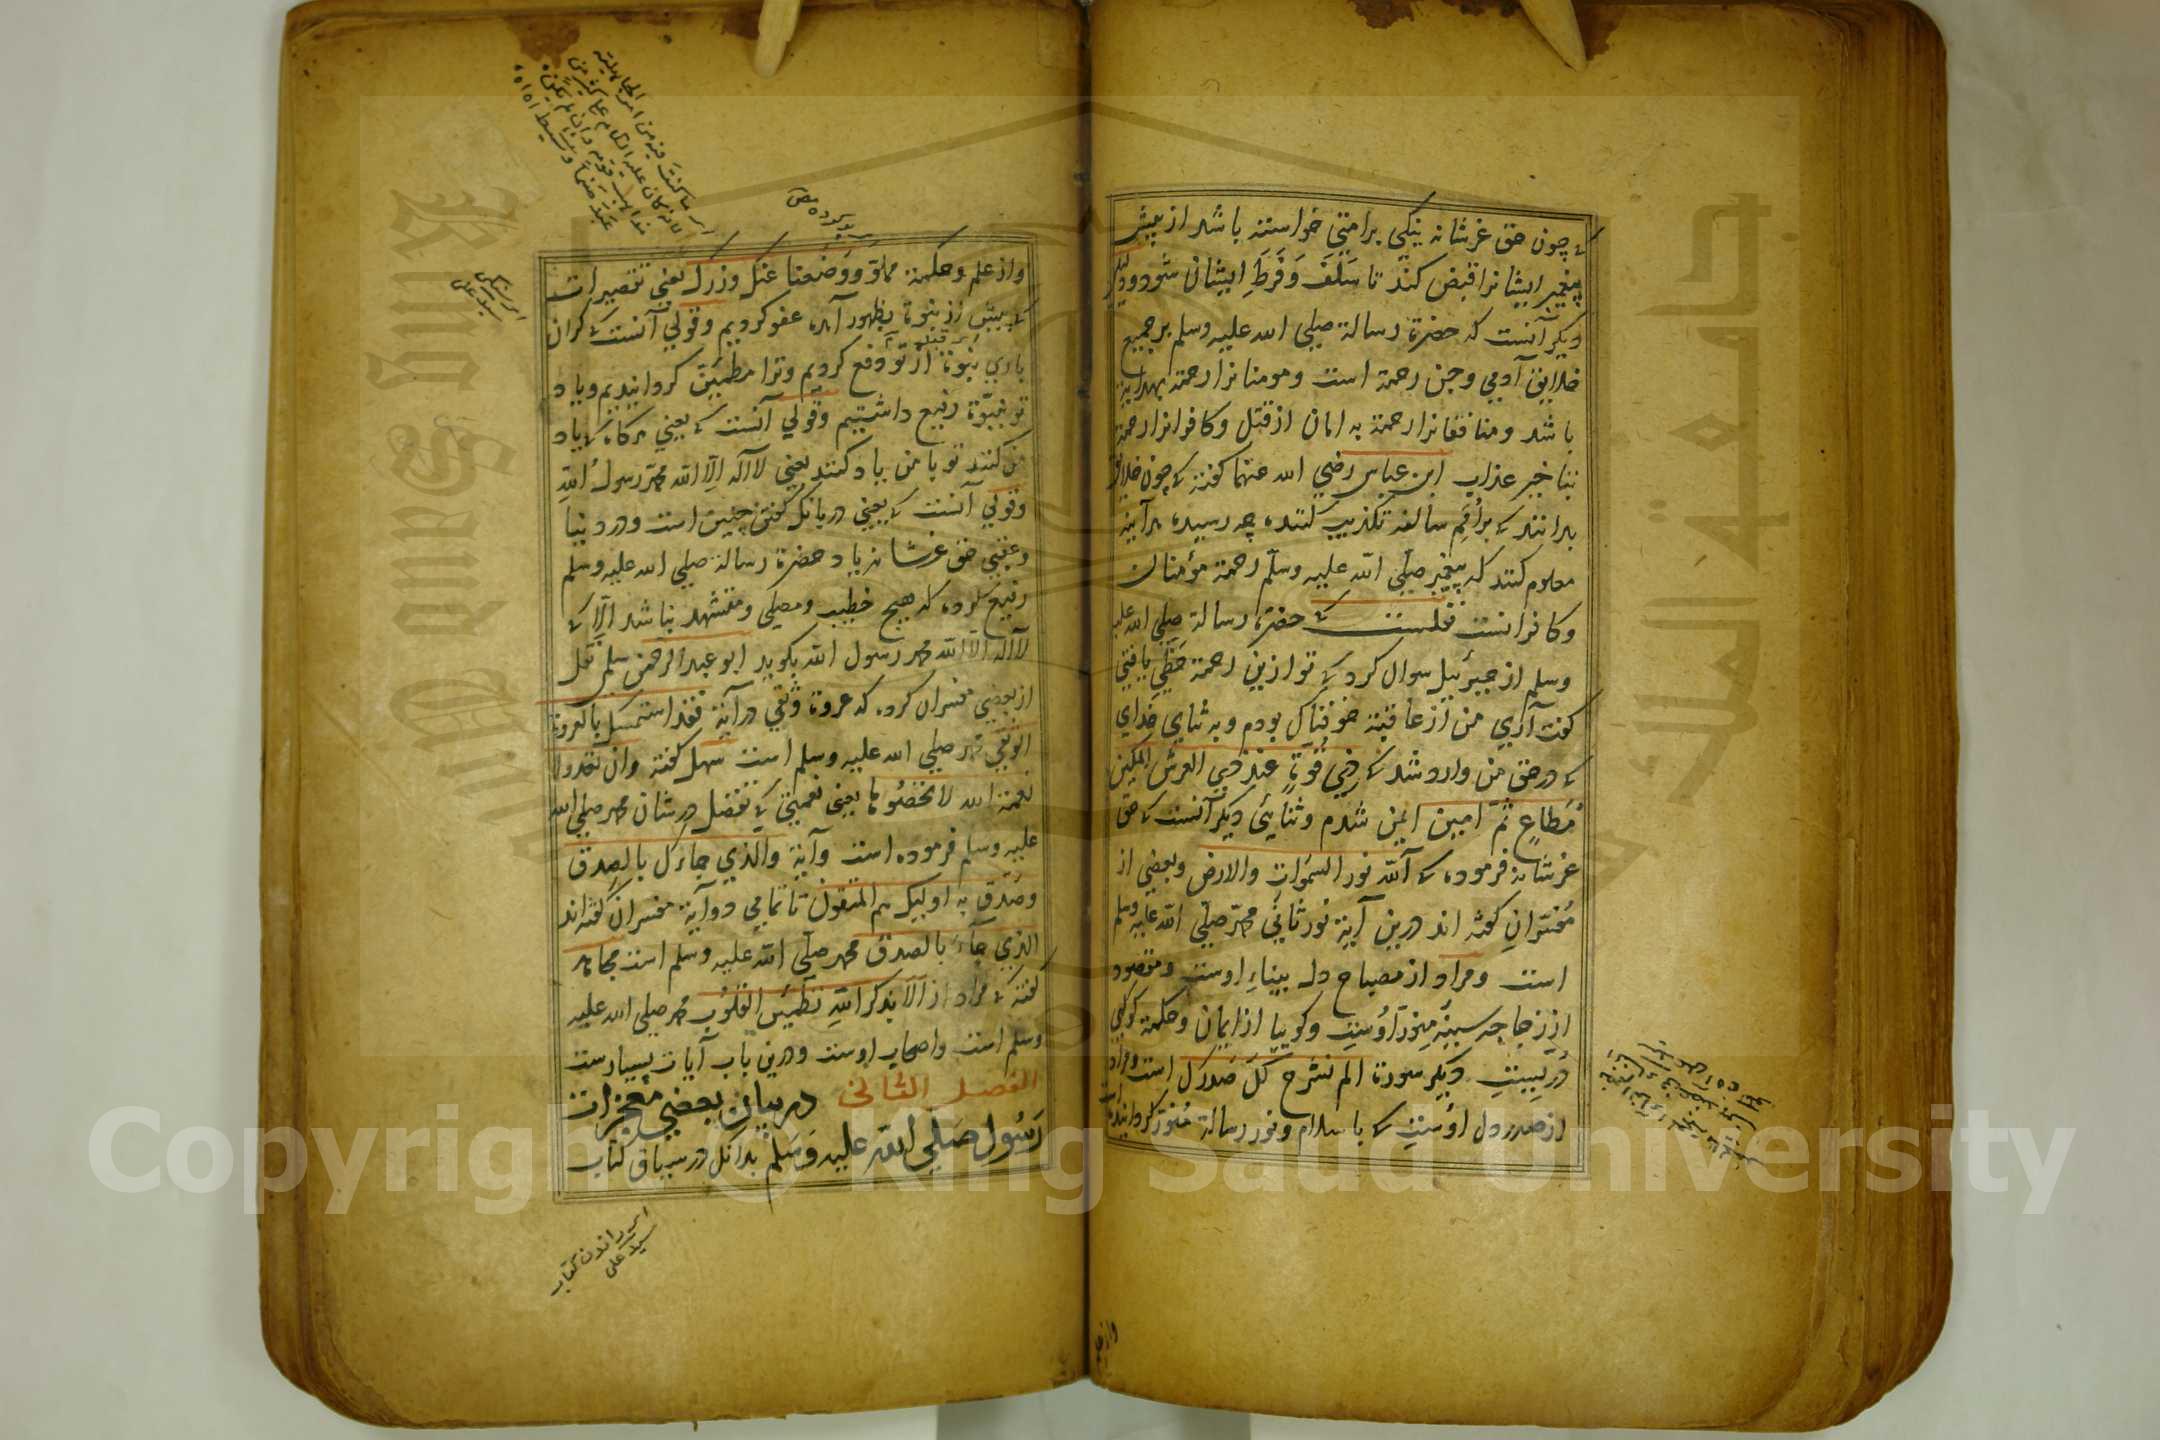 که چون حق عز شانه نیکی بر امتی خواسته باشد از پیش
پیغمبر ایشانرا قبض کند تا سَلَف وَفَرَطِ ایشان شود و دلیل
دیگر آنست که حضرة رسالة صلی الله علیه وسلم بر جمیع
خلایق آدمی وجن رحمة است ومومنانرا رحمة بهدایة
باشد ومنافقانرا رحمة به امان از قتل وکافرانرا رحمة
بتاخیر عذاب ابن عباس رضی الله عنهما گفته که چون خلایق
بدانند که بر اُمَمِ سالفه تکذیب کننده چه رسیده هرآینه
معلوم کنند که پیغمبر صلی الله علیه وسلم رحمة مؤمنان
وکافرانست نقلست که حضرة رسالة صلی الله علیه
وسلم از جبرئیل سوال کرد که تو ازین رحمة حَظّی یافتی
گفت آری من از عاقبة خوفناک بودم وبه ثنای خدای
که در حق من وارد شد که ذی قُوّةٍ عند ذی العرش المکین
مُطَاعٍ ثَمّ امین ایمن شدم وثنایی دیگر آنست که حق
عز شانه فرموده که الله نور السموات والارض وبعضی از
مُفسّرانِ گفته اند درین آیة نور ثانی محمّد صلّی الله علیه وسلم
است ومراد از مصباح دل بیناءِ اوست ومقصود
از زجاجه سینهٔ منوّر اوست وگوییا از ایمان وحکمة کوکبی
دُرّیست دیگر سورة الم نشرح لک صَدرک است ومراد
از صدر دل اوست که باسلام ونور رسالة مُنوّر گردانیده
واز علم
واز علم وحکمة مملو ووَضعنا عنک وزرک یعنی تقصیرات
که پیش از نبوة بظهور آمده عفو کردیم وقولی آنست که گران
باری نبوة از تو دفع کردیم وترا مطمئن گردانیدیم ویاد
تو بنبوّة رفیع داشتیم وقولی آنست که یعنی هرگاه که یاد
من کنند تو با من یاد کنند یعنی لا اله الا الله محمّد رسولُ اللهِ
وقولی آنست که یعنی در بانگ گفتن چنین است ودر دنیا
وعقبی حق عز شانه یاد حضرة رسالة صلی الله علیه وسلم
رفیع کرده که هیچ خطیب ومصلی ومتشهد نباشد الّا که
لا اله الا الله محمد رسول الله بگوید ابو عبد الرحمن سلمی نقل
از بعضی مفسران کرده که عروة وثقی در آیة فقد استمسک بالعروة
الوثقی محمد صلی الله علیه وسلم است سهل گفته وان تعدوا
نعمة الله لا تحصُوها یعنی نعمتی که تفضل در شان محمد صلی الله
علیه وسلم فرموده است وآیة والذی جاء بالصدق
وصدّق به اولیک هم المتقون تا تمامی دو آیة مفسران گفته اند
الذی جاء بالصدق محمد صلی الله علیه وسلم است مجاهد
گفته که مراد از الا بذکر اللهِ تطمئن القلوب محمد صلی الله علیه
وسلم است واصحاب اوست ودرین باب آیات بسیارست
الفصل الثانی در بیان بعضی معجزات
رَسُول صَلی الله علیه وَسَلم بدانک در سیاق کتاب
ای راندن کتاب
سید علی
Copyright © King Saud University
King Saud University
جامعة الملك سعود